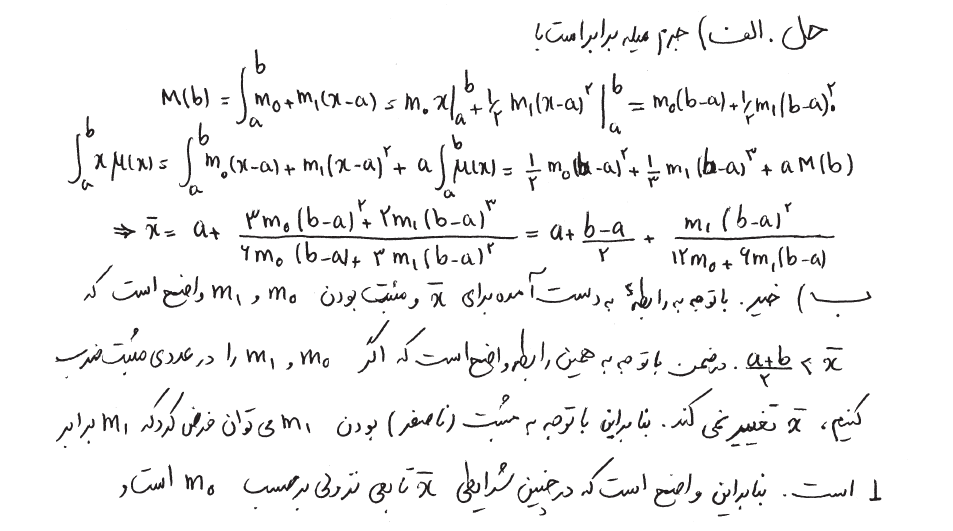 حل. الف) جرم میله برابر است با
M(b) = ∫_a^b m₀+m₁(x-a) = m₀x|_a^b + ½ m₁(x-a)^۲ |_a^b = m₀(b-a) + ½ m₁(b-a)^۲.
∫_a^b x μ(x) = ∫_a^b m₀(x-a) + m₁(x-a)^۲ + a ∫_a^b μ(x) = ۱/۲ m₀(b-a)^۲ + ۱/۳ m₁(b-a)^۳ + a M(b)
⇒ x̄ = a + (۳m₀(b-a)^۲ + ۲m₁(b-a)^۳)/(۶m₀(b-a) + ۳m₁(b-a)^۲) = a + (b-a)/۲ + (m₁(b-a)^۲)/(۱۲m₀ + ۶m₁(b-a))
ب) خیر. با توجه به رابطهٔ به دست آمده برای x̄ و مثبت بودن m₀ و m₁ واضح است که
x̄ > (a+b)/۲. در ضمن با توجه به همین رابطه واضح است که اگر m₀ و m₁ را در عددی مثبت ضرب
کنیم، x̄ تغییر نمی کند. بنابراین با توجه به مثبت (ناصفر) بودن m₁ می توان فرض کرد که m₁ برابر
۱ است. بنابراین واضح است که در چنین شرایطی x̄ تابعی نزولی برحسب m₀ است و